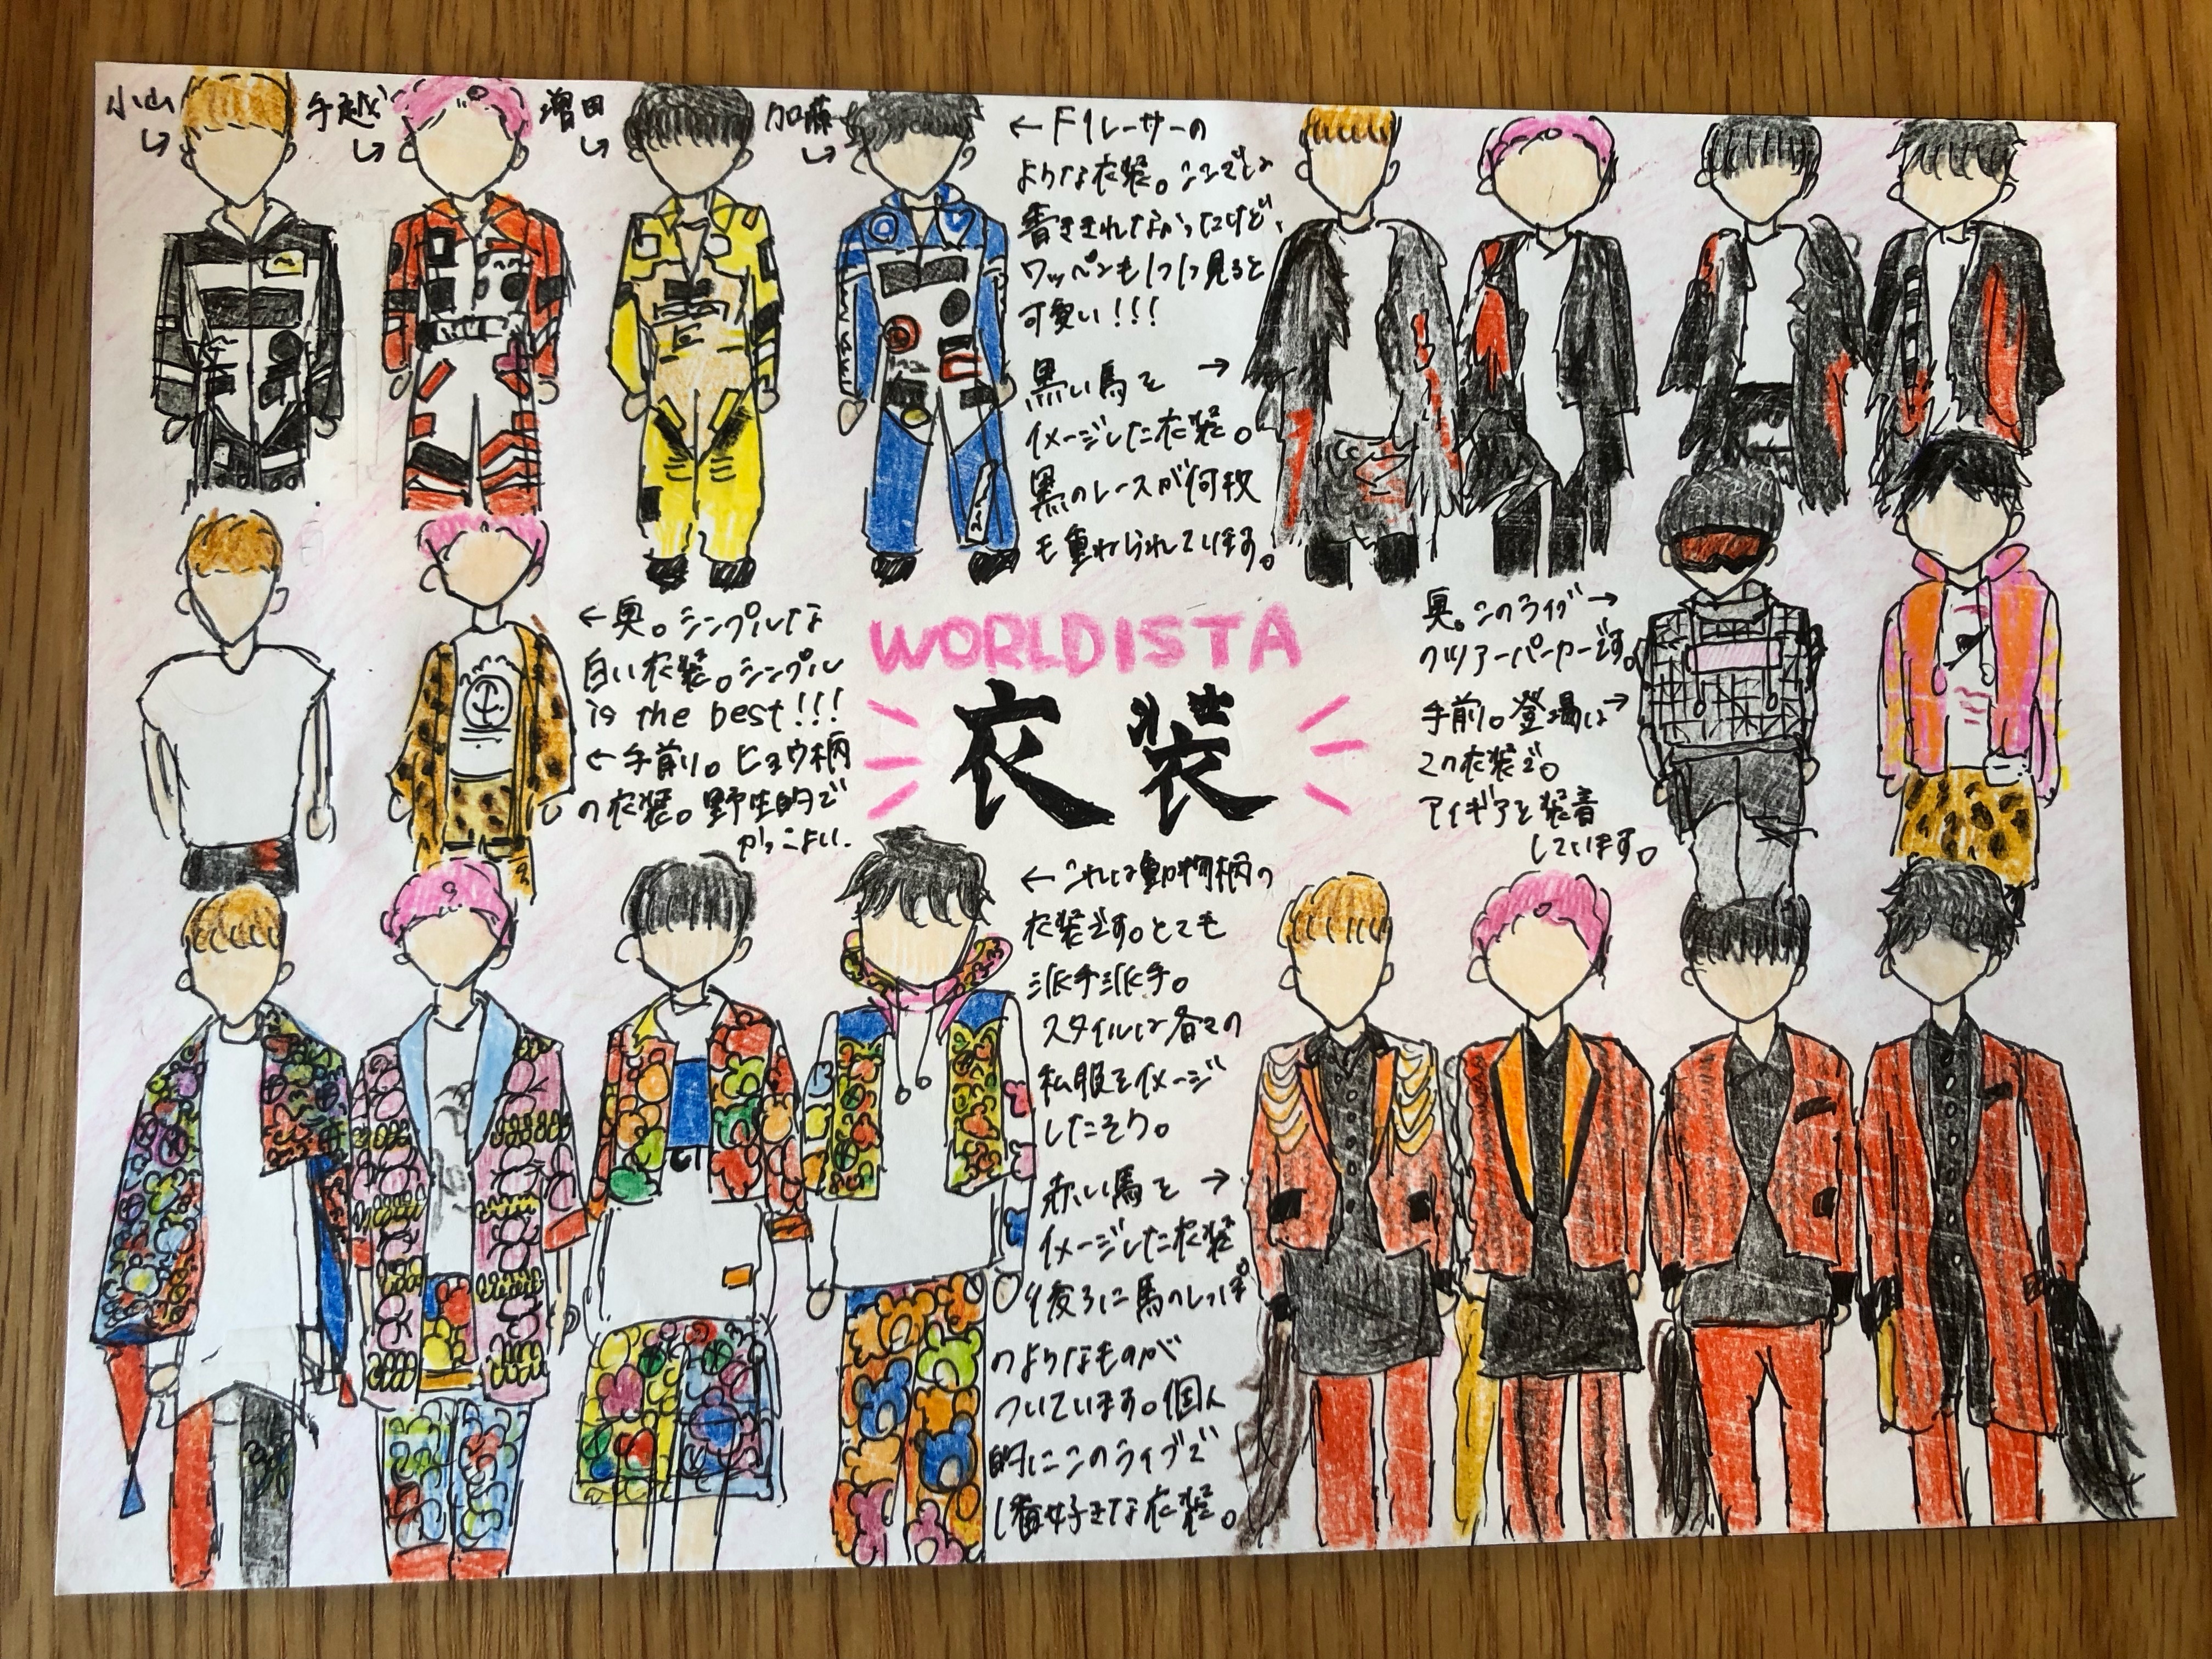 小山
手越
増田
加藤
← F1レーサーの
ような衣装。ここでは
書ききれなかったけど、
ワッペンも1つ1つ見ると
可愛い!!!
黒い馬を →
イメージした衣装。
黒のレースが何枚
も重ねられています。
← 奥。シンプルな
白い衣装。シンプル
is the best!!!
← 手前。ヒョウ柄
の衣装。野生的で
かっこよい.
WORLDISTA
衣装
奥。このライブ →
のツアーパーカーです。
手前。登場は →
この衣装で。
アイギアを装着
しています。
← これは動物柄の
衣装です。とても
派手派手。
スタイルは各々の
私服をイメージ
したそう。
赤い馬を →
イメージした衣装
後ろに馬のしっぽ
のようなものが
ついています。個人
的にこのライブで
1番好きな衣装。